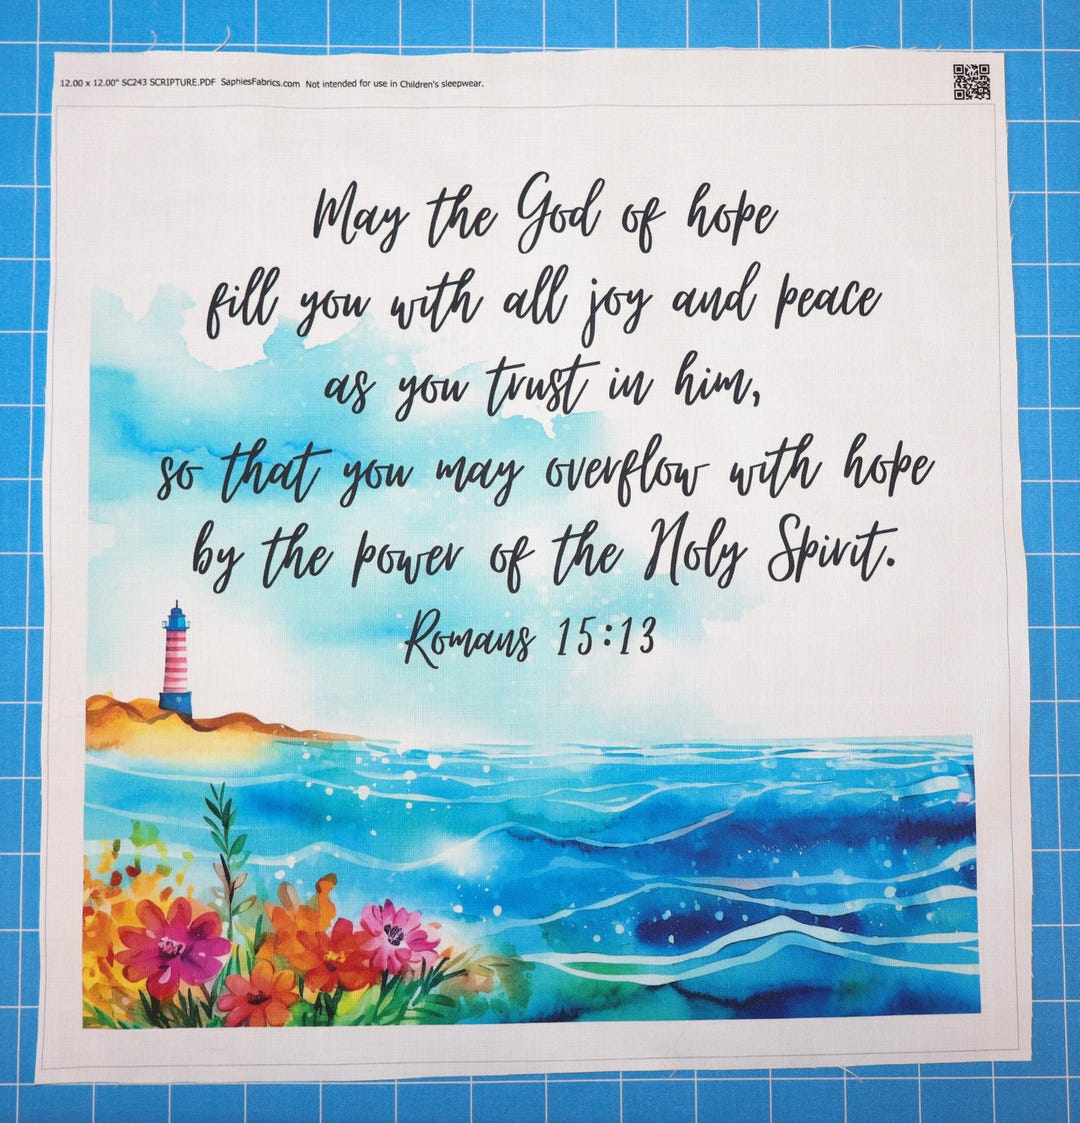 12.00 x 12.00" SC243 SCRIPTURE.PDF SaphiesFabrics.com Not intended for use in Children's sleepwear.
May the God of hope
fill you with all joy and peace
as you trust in him,
so that you may overflow with hope
by the power of the Holy Spirit.
Romans 15:13